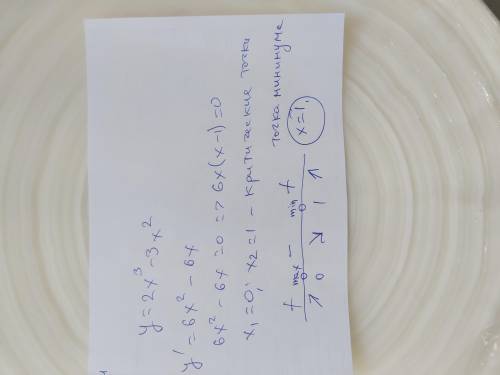 y = 2x³ - 3x²
y' = 6x² - 6x
6x² - 6x = 0 => 6x(x-1) = 0
x₁ = 0; x₂ = 1 - критические точки
+ max - min +
0 1
точка минимума
x = 1.